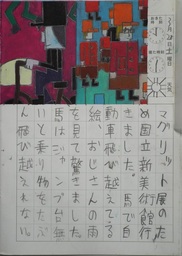 3月28日土曜日
マグリット展のた
め国立新美術館行
きました。馬で自
動車飛び越えてる
絵おじさんの雨
を見て驚きました
馬はジャンプ台無
いと乗り物をたぶ
ん飛び越えれない。